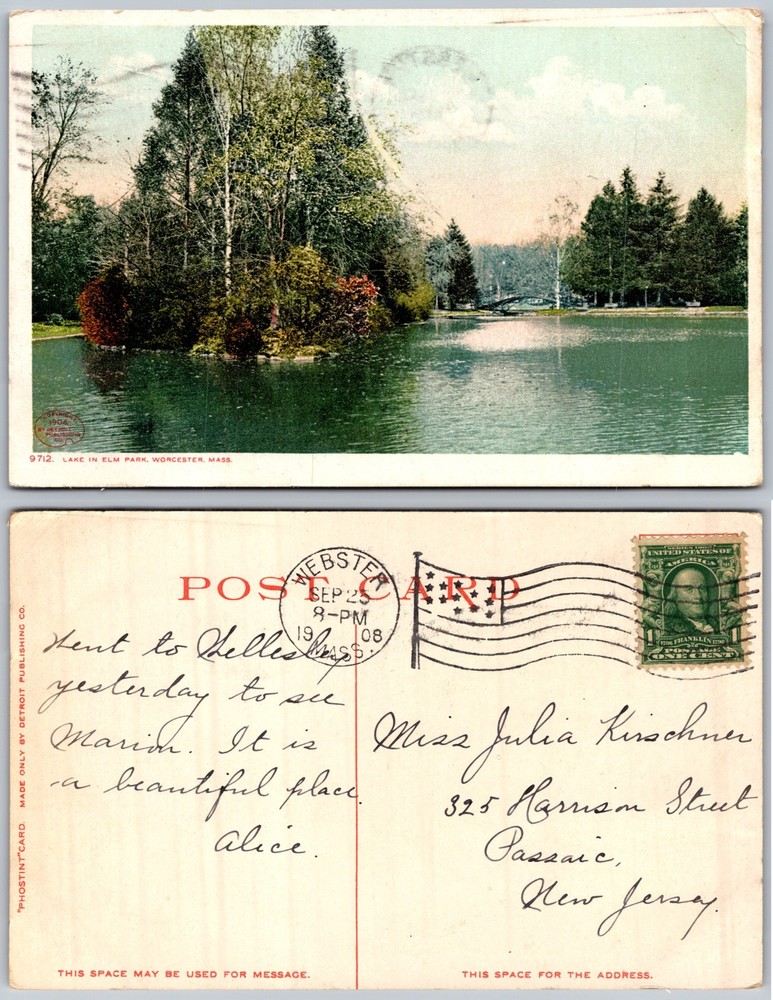 COPYRIGHT
1906
BY DETROIT
PUBLISHING
CO.
9712. LAKE IN ELM PARK, WORCESTER, MASS.
POST CARD
WEBSTER
SEP 25
8-PM
1908
MASS.
SERIES 1902
UNITED STATES OF
AMERICA
1
FRANKLIN
POSTAGE
ONE CENT
Went to Wellesley
yesterday to see
Marion. It is
a beautiful place.
Alice.
Miss Julia Kirschner
325 Harrison Street
Passaic,
New Jersey.
"PHOSTINT" CARD. MADE ONLY BY DETROIT PUBLISHING CO.
THIS SPACE MAY BE USED FOR MESSAGE.
THIS SPACE FOR THE ADDRESS.